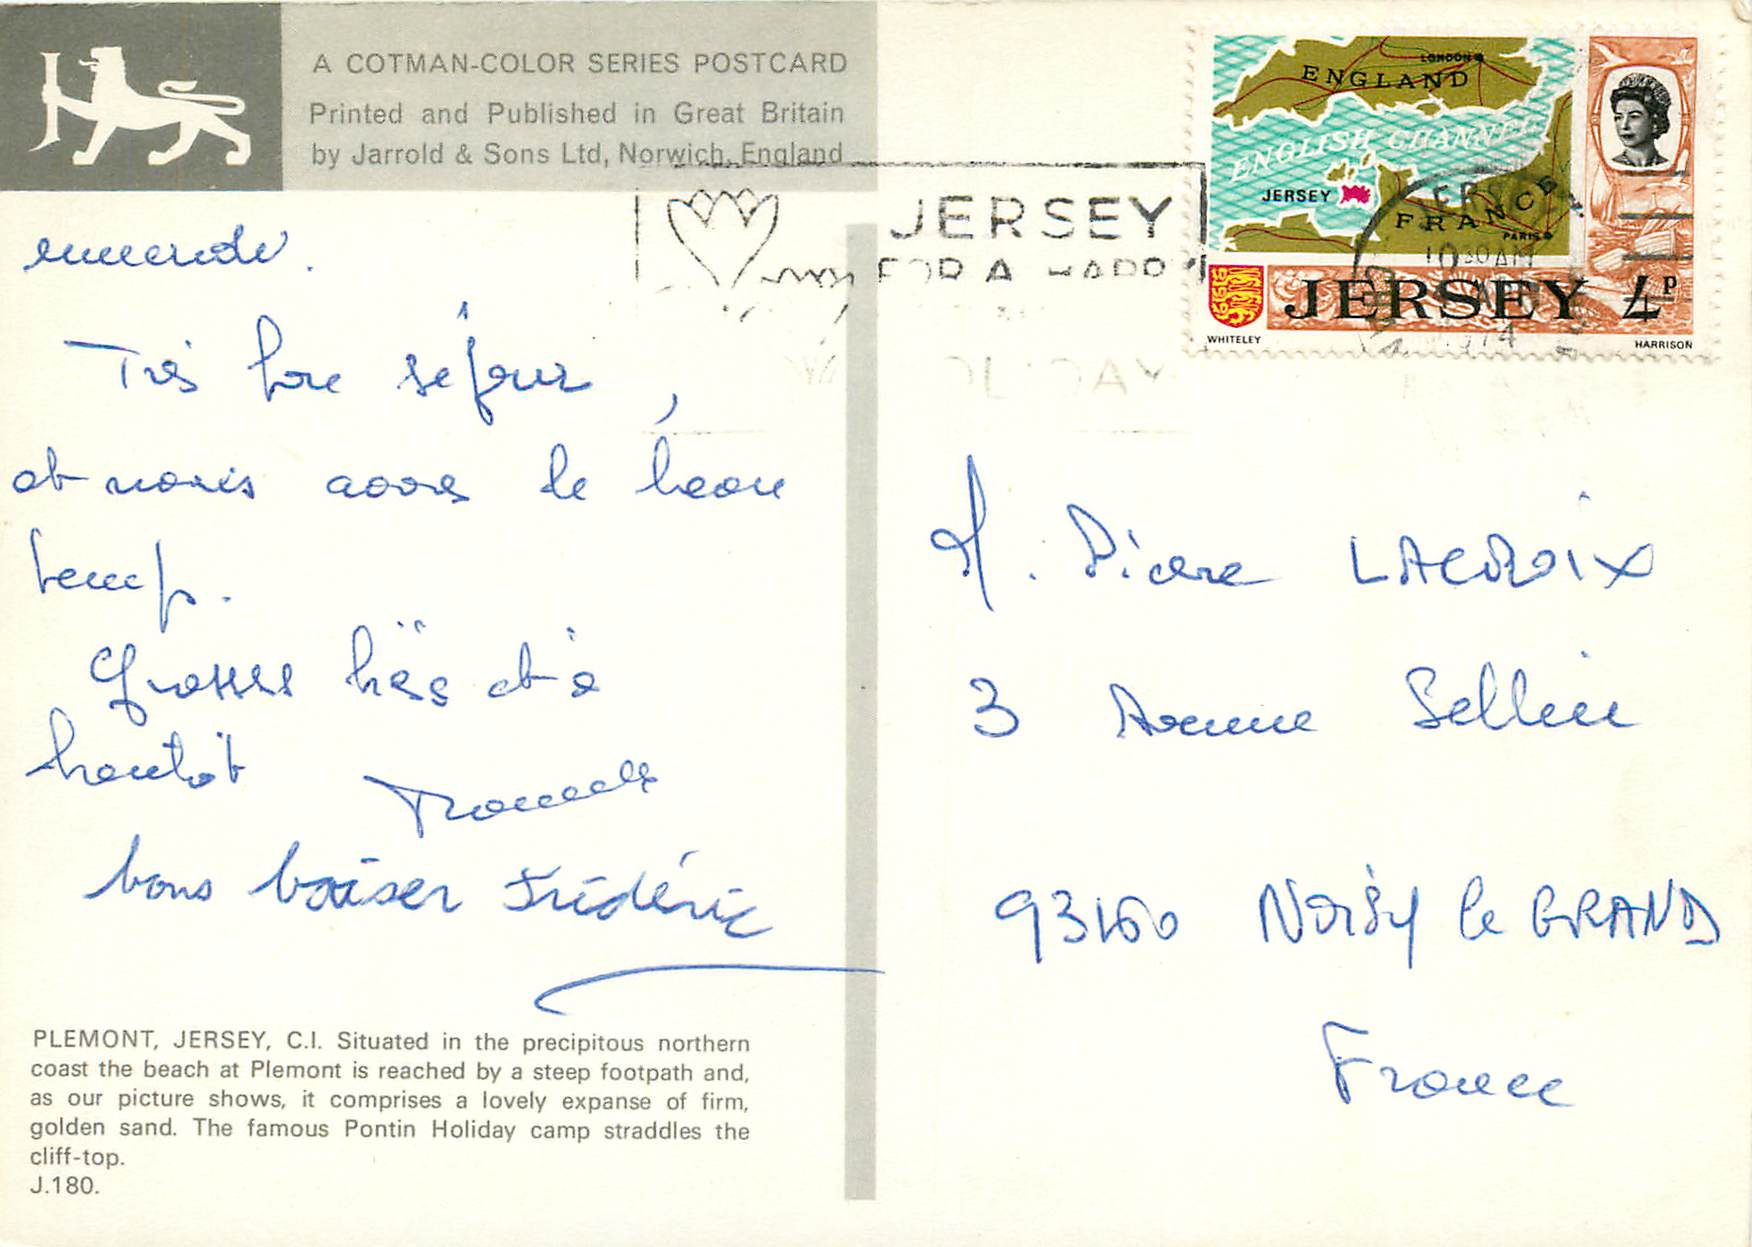 A COTMAN-COLOR SERIES POSTCARD
Printed and Published in Great Britain
by Jarrold & Sons Ltd, Norwich, England
Très bon séjour,
et nous avons le beau
temps.
Grosses bises et à
bientôt
bons baiser Frédéric
PLEMONT, JERSEY, C.I. Situated in the precipitous northern
coast the beach at Plemont is reached by a steep footpath and,
as our picture shows, it comprises a lovely expanse of firm,
golden sand. The famous Pontin Holiday camp straddles the
cliff-top.
J.180.
JERSEY
FOR A HAPPY
HOLIDAY
LONDON
ENGLAND
ENGLISH CHANNEL
JERSEY
FRANCE
PARIS
JERSEY 4p
WHITELEY HARRISON
JERSEY
10 30 AM
M. Pierre LACROIX
3 Avenue Sellier
93160 NOISY le GRAND
France